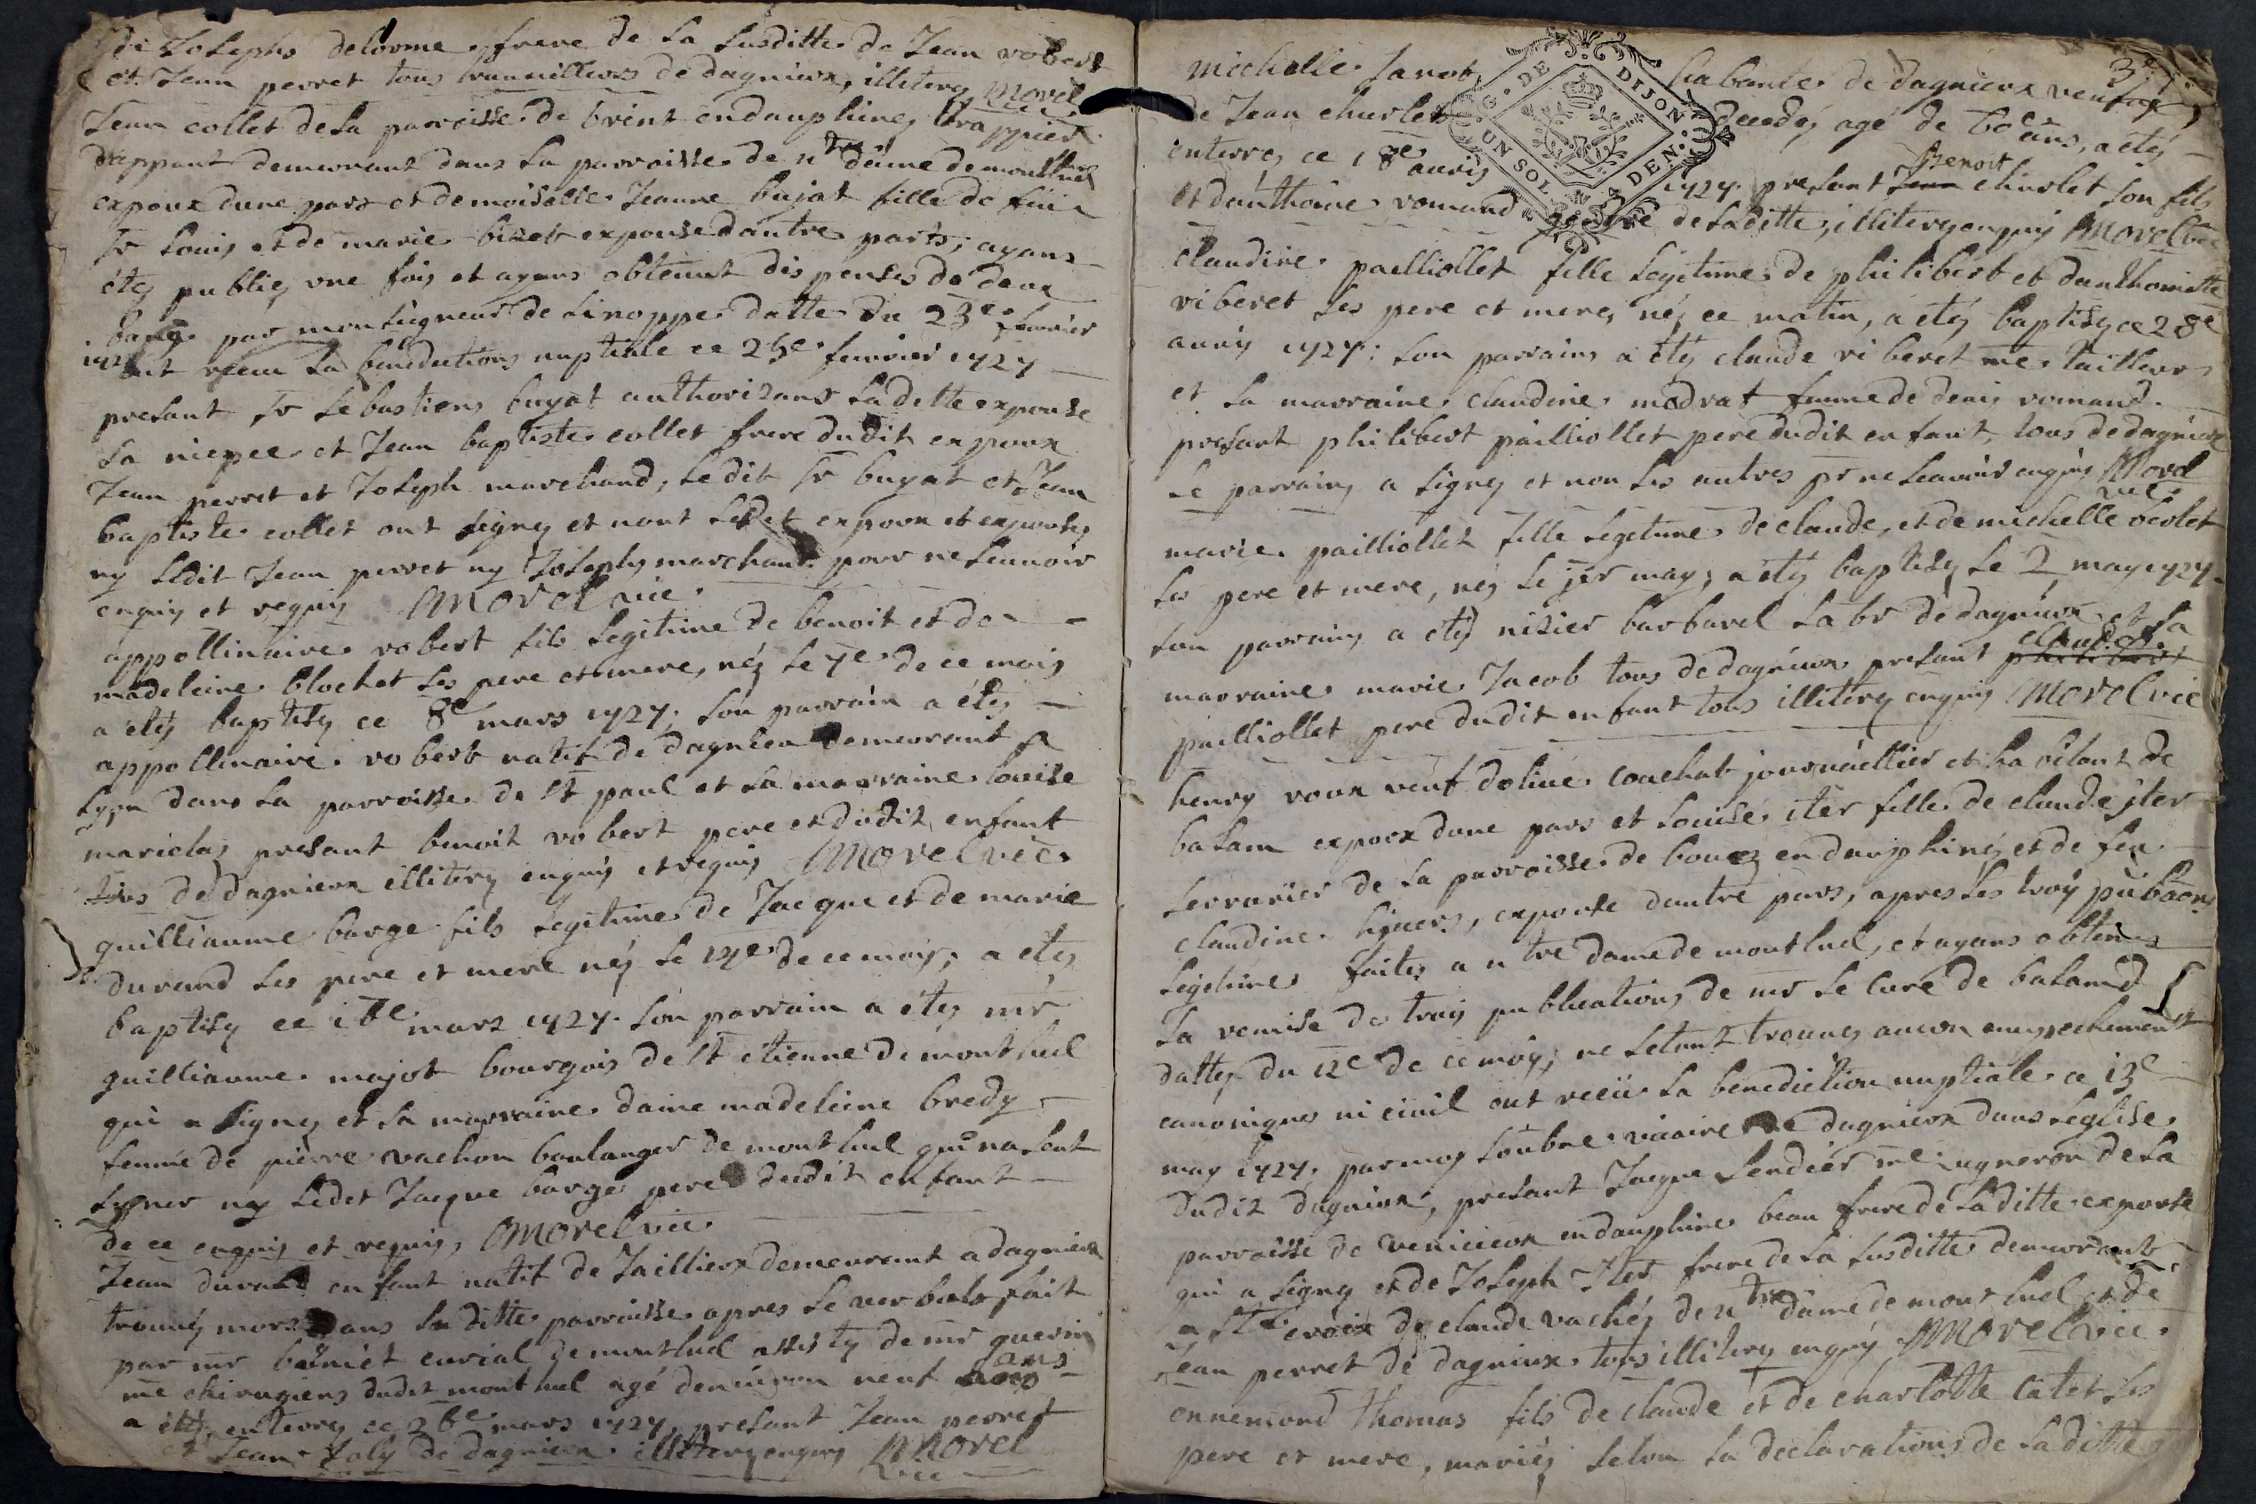 de Joseph delorme frere de la susditte de Jean robert
et Jean perret tous travailleurs de dagnieux, illiterez Morel
Jean collet de la parroisse de brint en dauphinez
demeurant dans la parroisse de ntre dame de montluel
expoux dune part et demoiselle Jeanne bujat fille de feu
sr louis et de marie bizet expouse dautre parts, ayans
étéz publiez une fois et ayans obtenut dispenses de deux
bang par monseigneur de Sinoppe datte du 23e feuvrier
1727 ont receu la benedictions nuptiale ce 25e feuvrier 1727
presant sr sebastiens buyat authorizans laditte expouse
sa niepce et Jean baptiste collet frere dudit expoux
Jean perret et Joseph marchand, ledit sr buyat et Jean
baptiste collet ont signez et nont led et expoux et expouse
ny ledit Jean perret ny Joseph marchand pour ne scauoir
enquis et requis Morel vic
appollinaire robert fils legitime de benoit et de
madeleine blochet ses pere et mere, néz le 7e de ce mois
a étéz baptisez ce 8e mars 1727, son parrain a étéz
appollinaire robert natif de dagnieu demeurant a
lyon dans la parroisse de st paul et la marraine louise
mariclas presant benoit robert pere dudit enfant
tous de dagnieux illiterez enquis et requis Morel vic
guilliaume barge fils legitime de Jacque et de marie
durand ses pere et mere néz le 14e de ce mois, a etéz
baptisez ce 16e mars 1727. son parrain a étéz mr
guilliaume majot bourgois de st etienne de montluel
qui a signez et la marraine dame madeleine bredy
femme de pierre vachon boulanger de montluel qui na sceut
signer ny ledit Jacque barge pere dudit enfant
de ce enquis et requis, Morel vic
Jean durand enfant natif de Jaillieux demeurant a dagnieux
trouuéz mort dans laditte parroisse apres le verbals fait
par mr curial de montluel assistéz de mr guerin
me chirugiens dudit montluel agé denuiron neuf ans
a étéz enterrez ce 26e mars 1727 presant Jean perret
et Jean Joly de dagnieux illiterez enquis Morel
vic
michelle Janot habante de dagnieux veufue
3e
de Jean charlet decedéz agé de 60 ans, a étéz
enterrez ce 18e avris 1727 presant Benoit charlet son fils
G. DE DIJON
UN SOL. 4 DEN.
et d'anthoine romand gendre de laditte, illiterez enquis Morel vic
claudine pailliollet fille legitime de philibert et danthoinette
riberet ses pere et mere, néz ce matin, a étéz baptisez ce 28e
auris 1727, son parrains a étéz claude riberet me tailleur
et la marraine claudine modrat femme de denis romand
presant philibert pailliollet pere dudit enfant, tous de dagnieux
le parrains a signez et non les autres pr ne scauoir enquis Morel
vic
marie pailliollet fille legitime de claude, et de michelle
ses pere et mere, néz le jer may, a étéz baptisez le 2 may 1727
son parrains a étéz nizier barbarel labr de dagnieux et la
marraine marie Jacob tous de dagnieux presant claude
pailliollet pere dudit enfant tous illiterez enquis Morel vic
henry roux veuf doliue couchat journaillier et habitant de
balam expoux dune pars et louise iter fille de claude jter
serrurier de la parroisse de bouez en dauphinéz et de feu
claudine , expouse dautre pars, apres les troy
legitime faitez a ntre dame de montluel, et ayans obtenus
la remise de trois publications de mr le curé de balamd
dattez du 12e de ce moy, ne setant trouuez aucun empechement
canoniques ni ciuil ont receu la benediction nuptiale ce 13e
may 1727, par moy soubne vicaire de dagnieux dans leglise
dudit dagnieux, presant Jaque sendier me vigneron de la
parroisse de venicieux en dauphine beau frere de laditte expouse
qui a signez et de Joseph Jter frere de la susditte demeurant
a ste croix de claude vachéz de ntre dame de montluel et de
Jean perret de dagnieux tous illiterez enquis Morel vic
ennemond thomas fils de claude et de charlotte catet ses
pere et mere, mariéz selon la declarations de laditte